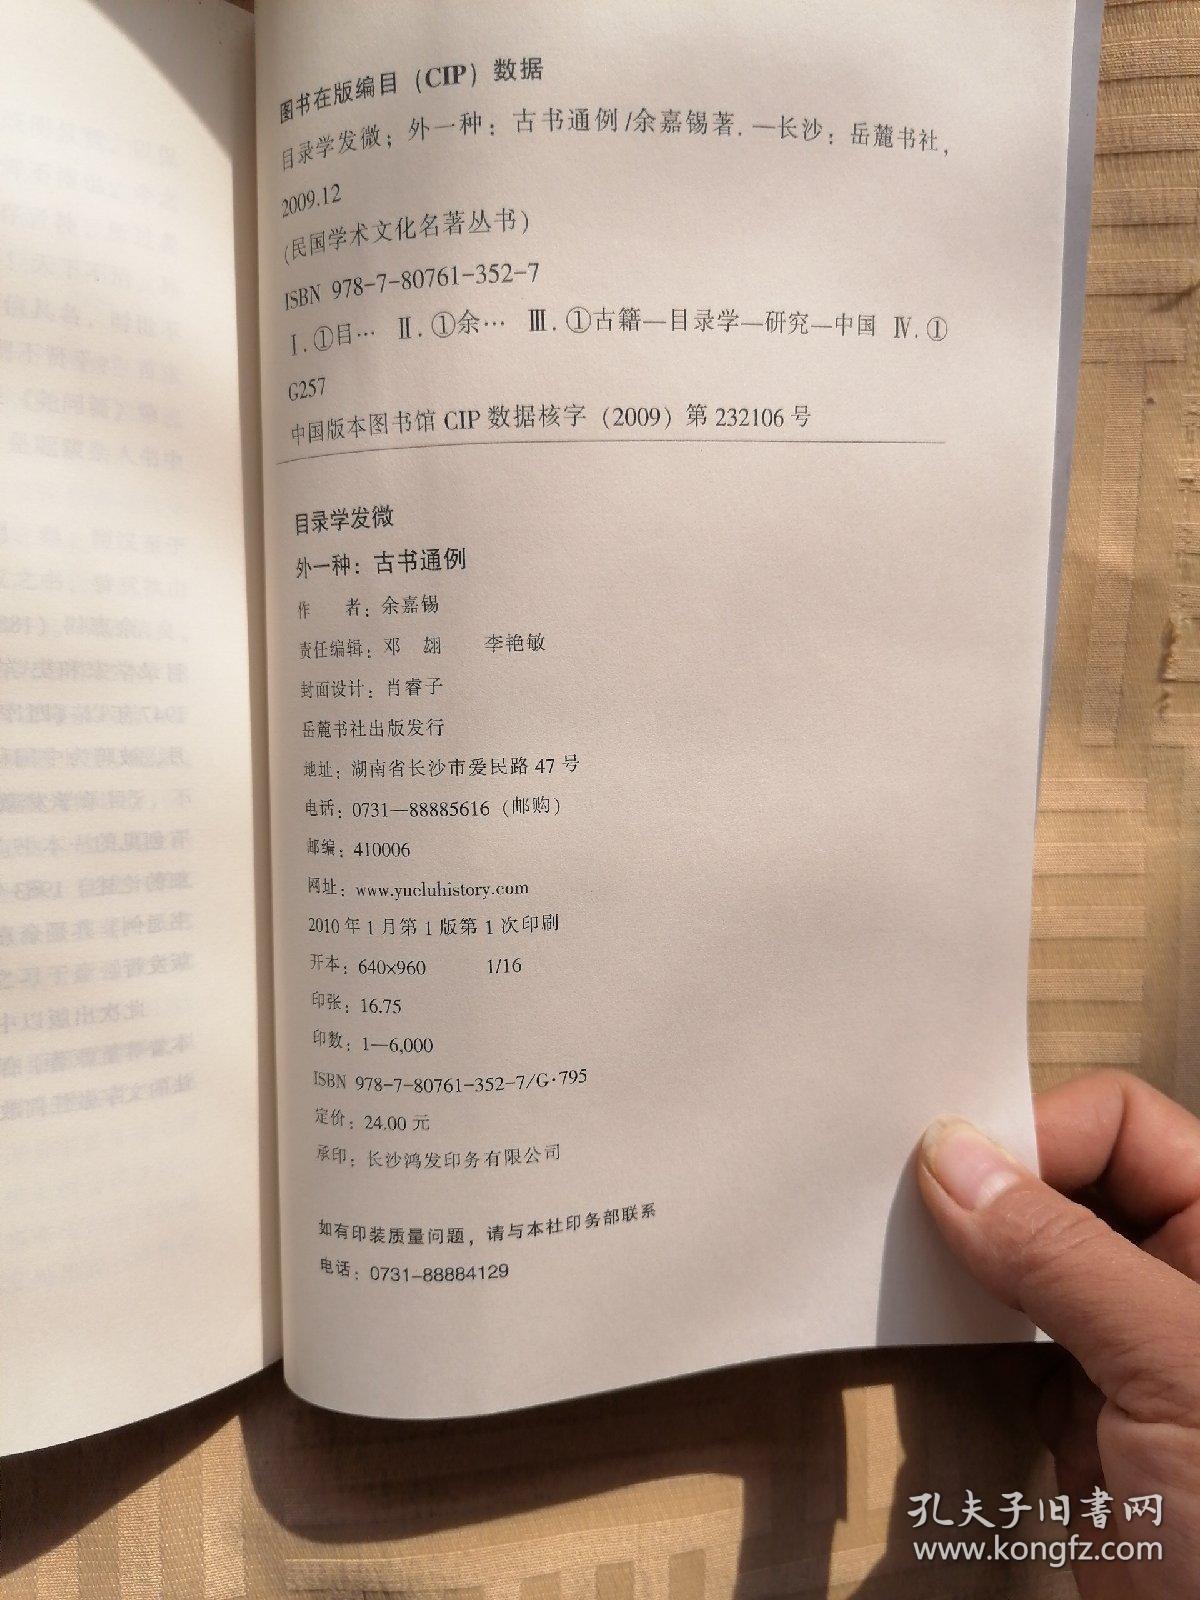 图书在版编目（CIP）数据
目录学发微；外一种：古书通例/余嘉锡著．—长沙：岳麓书社，
2009.12
（民国学术文化名著丛书）
ISBN 978-7-80761-352-7
Ⅰ.①目… Ⅱ.①余… Ⅲ.①古籍—目录学—研究—中国 Ⅳ.①
G257
中国版本图书馆 CIP 数据核字（2009）第 232106 号
目录学发微
外一种：古书通例
作 者：余嘉锡
责任编辑：邓 翃 李艳敏
封面设计：肖睿子
岳麓书社出版发行
地址：湖南省长沙市爱民路 47 号
电话：0731—88885616（邮购）
邮编：410006
网址：www.yueluhistory.com
2010 年 1 月第 1 版第 1 次印刷
开本：640×960 1/16
印张：16.75
印数：1—6,000
ISBN 978-7-80761-352-7/G·795
定价：24.00 元
承印：长沙鸿发印务有限公司
如有印装质量问题，请与本社印务部联系
电话：0731-88884129
孔夫子旧書网
www.kongfz.com